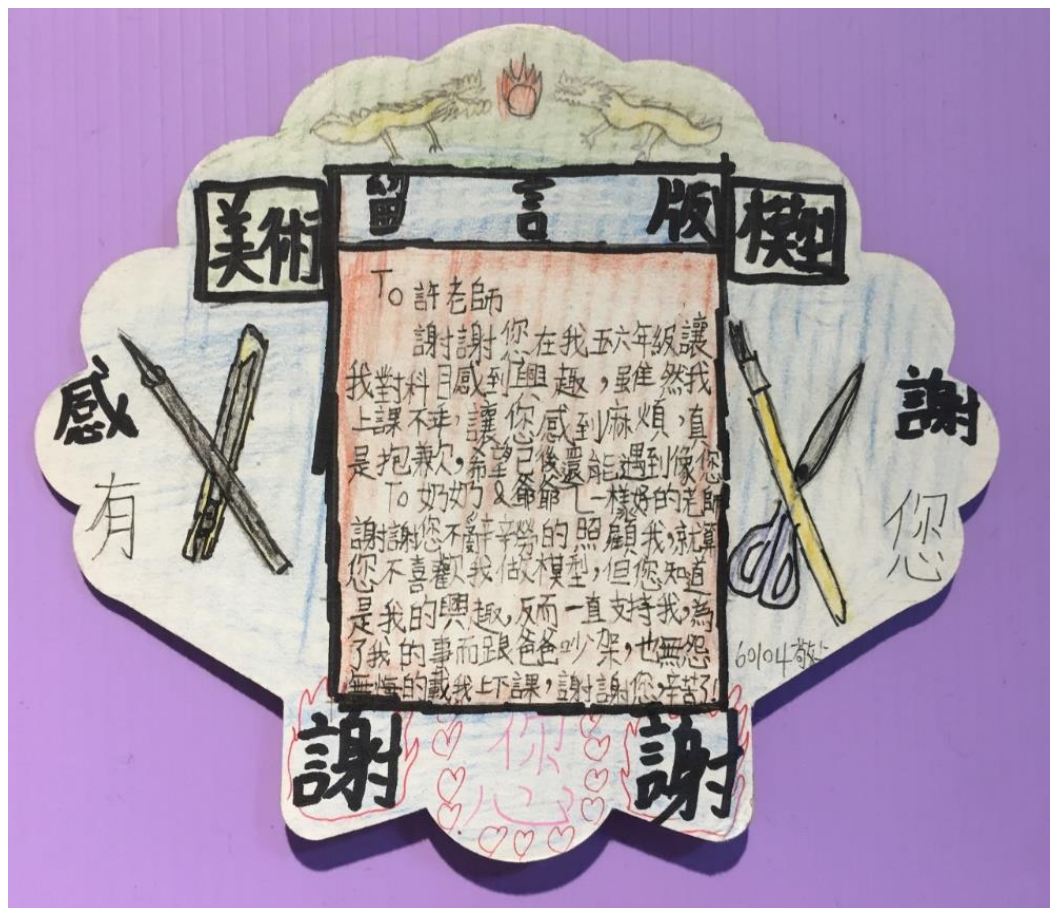 美術 留言版 模型
To 許老師
謝謝您在我五六年級讓
我對科目感到興趣,雖然我
上課不乖,讓您感到麻煩,真
是抱歉,希望已後還能遇到像您
To 奶奶&爺爺 一樣好的老師
謝謝您不辭辛勞的照顧我,就算
您不喜歡我做模型,但您知道
是我的興趣,反而一直支持我,為
了我的事而跟爸爸吵架,也無怨
無悔的載我上下課,謝謝您,辛苦了
感謝
有您
60104敬上
謝您謝